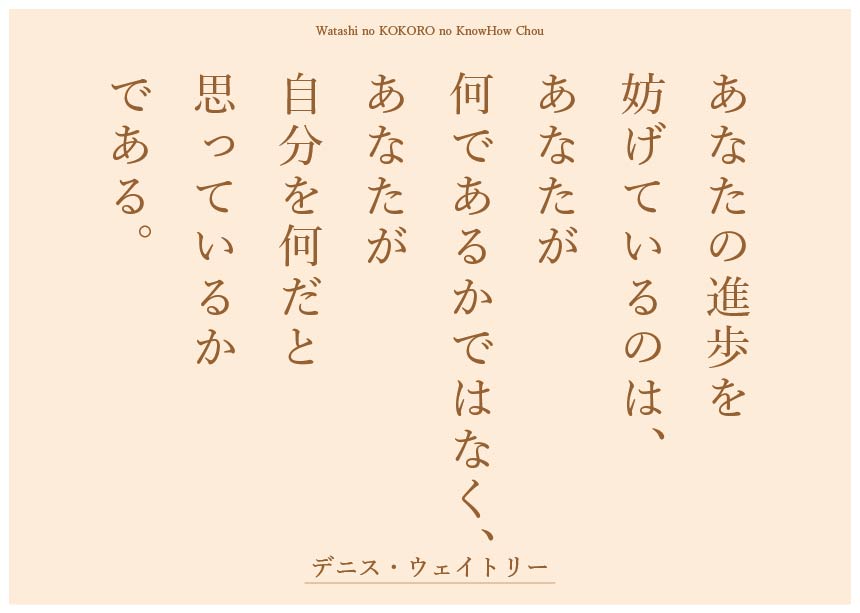 Watashi no KOKORO no KnowHow Chou
あなたの進歩を
妨げているのは、
あなたが
何であるかではなく、
あなたが
自分を何だと
思っているか
である。
デニス・ウェイトリー